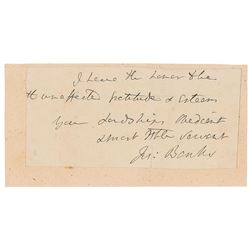 I have the honor to be
Unaffected Gratitude & Esteem
your Lordships Obedient
& most Hble Servant
Jos: Banks